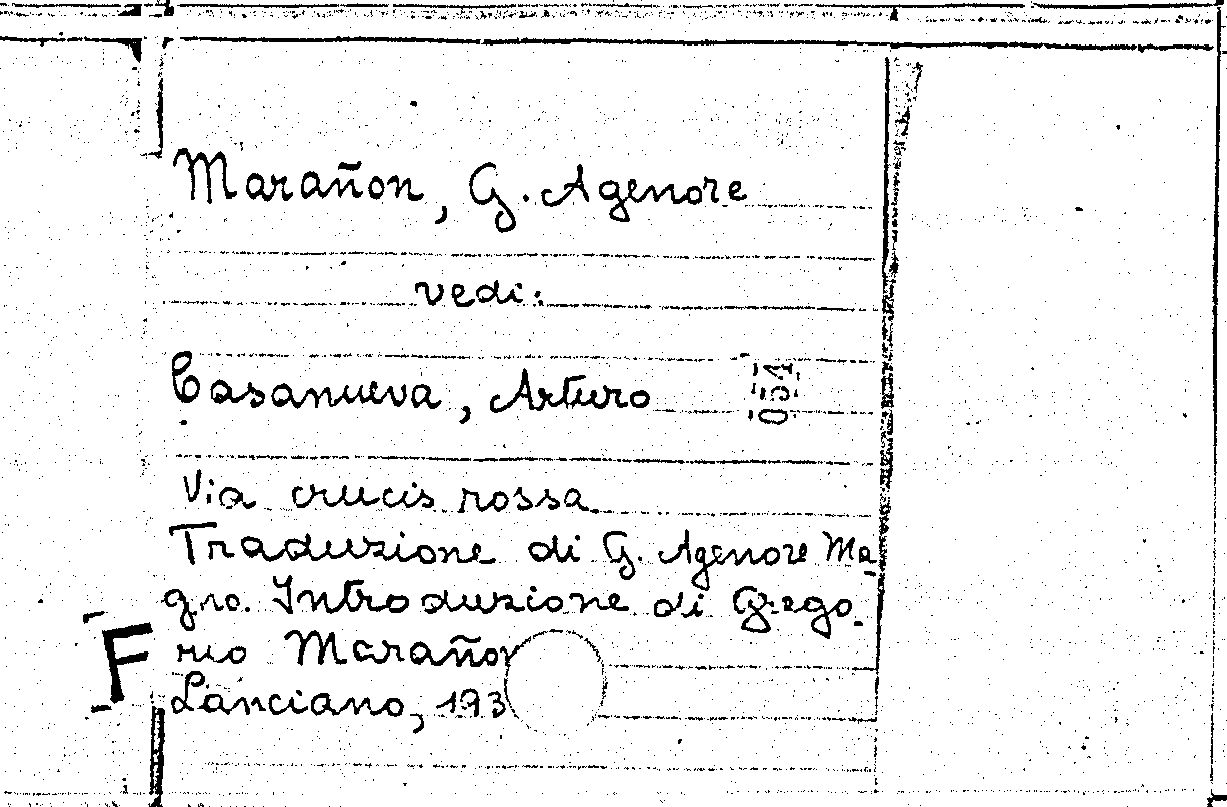 Marañon, G. Agenore
vedi:
Casanueva, Arturo
054
Via crucis rossa
Traduzione di G. Agenore Ma-
gno. Introduzione di Grego-
rio Marañon
Lanciano, 193
F